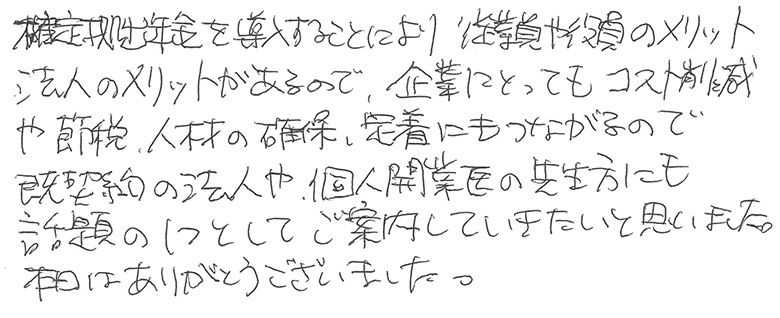 確定拠出年金を導入することにより 従業員や役員のメリット
法人のメリットがあるので、企業にとっても コスト削減
や節税、人材の確保、定着にもつながるので
既契約の法人や、個人開業医の先生方にも
話題の1つとしてご案内していきたいと思いました。
本日はありがとうございました。